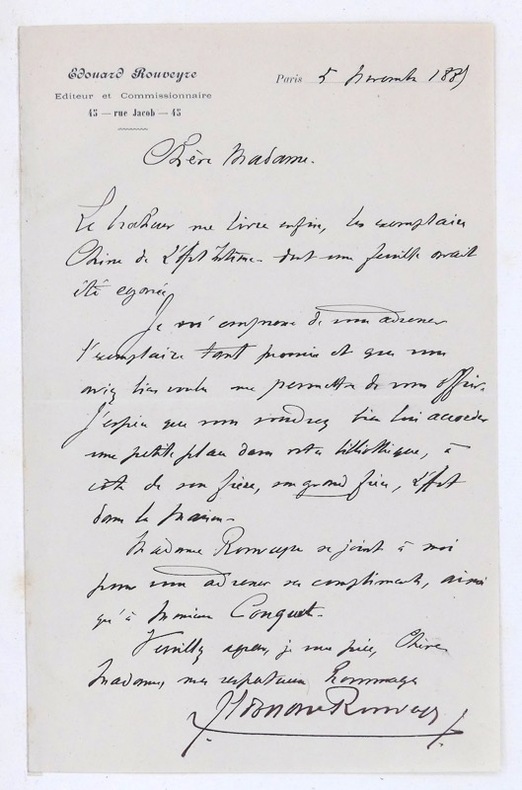 Edouard Rouveyre
Editeur et Commissionnaire
45 — rue Jacob — 45
Paris 5 Novembre 188
Chère Madame.
Le brocheur me livre enfin, les exemplaires
Chine de l'Art Intime - dont une feuille avait
été égarée
Je m'empresse de vous adresser
l'exemplaire tant promis et que vous
aviez bien voulu me permettre de vous offrir.
J'espère que vous voudrez bien lui accorder
une petite place dans votre bibliothèque, à
côté de son frère, son grand frère, l'Art
dans la Maison -
Madame Rouveyre se joint à moi
pour vous adresser ses compliments, ainsi
qu'à Monsieur Conquet.
Veuillez agréer, je vous prie, Chère
Madame, mes respectueux hommages
Edouard Rouveyre